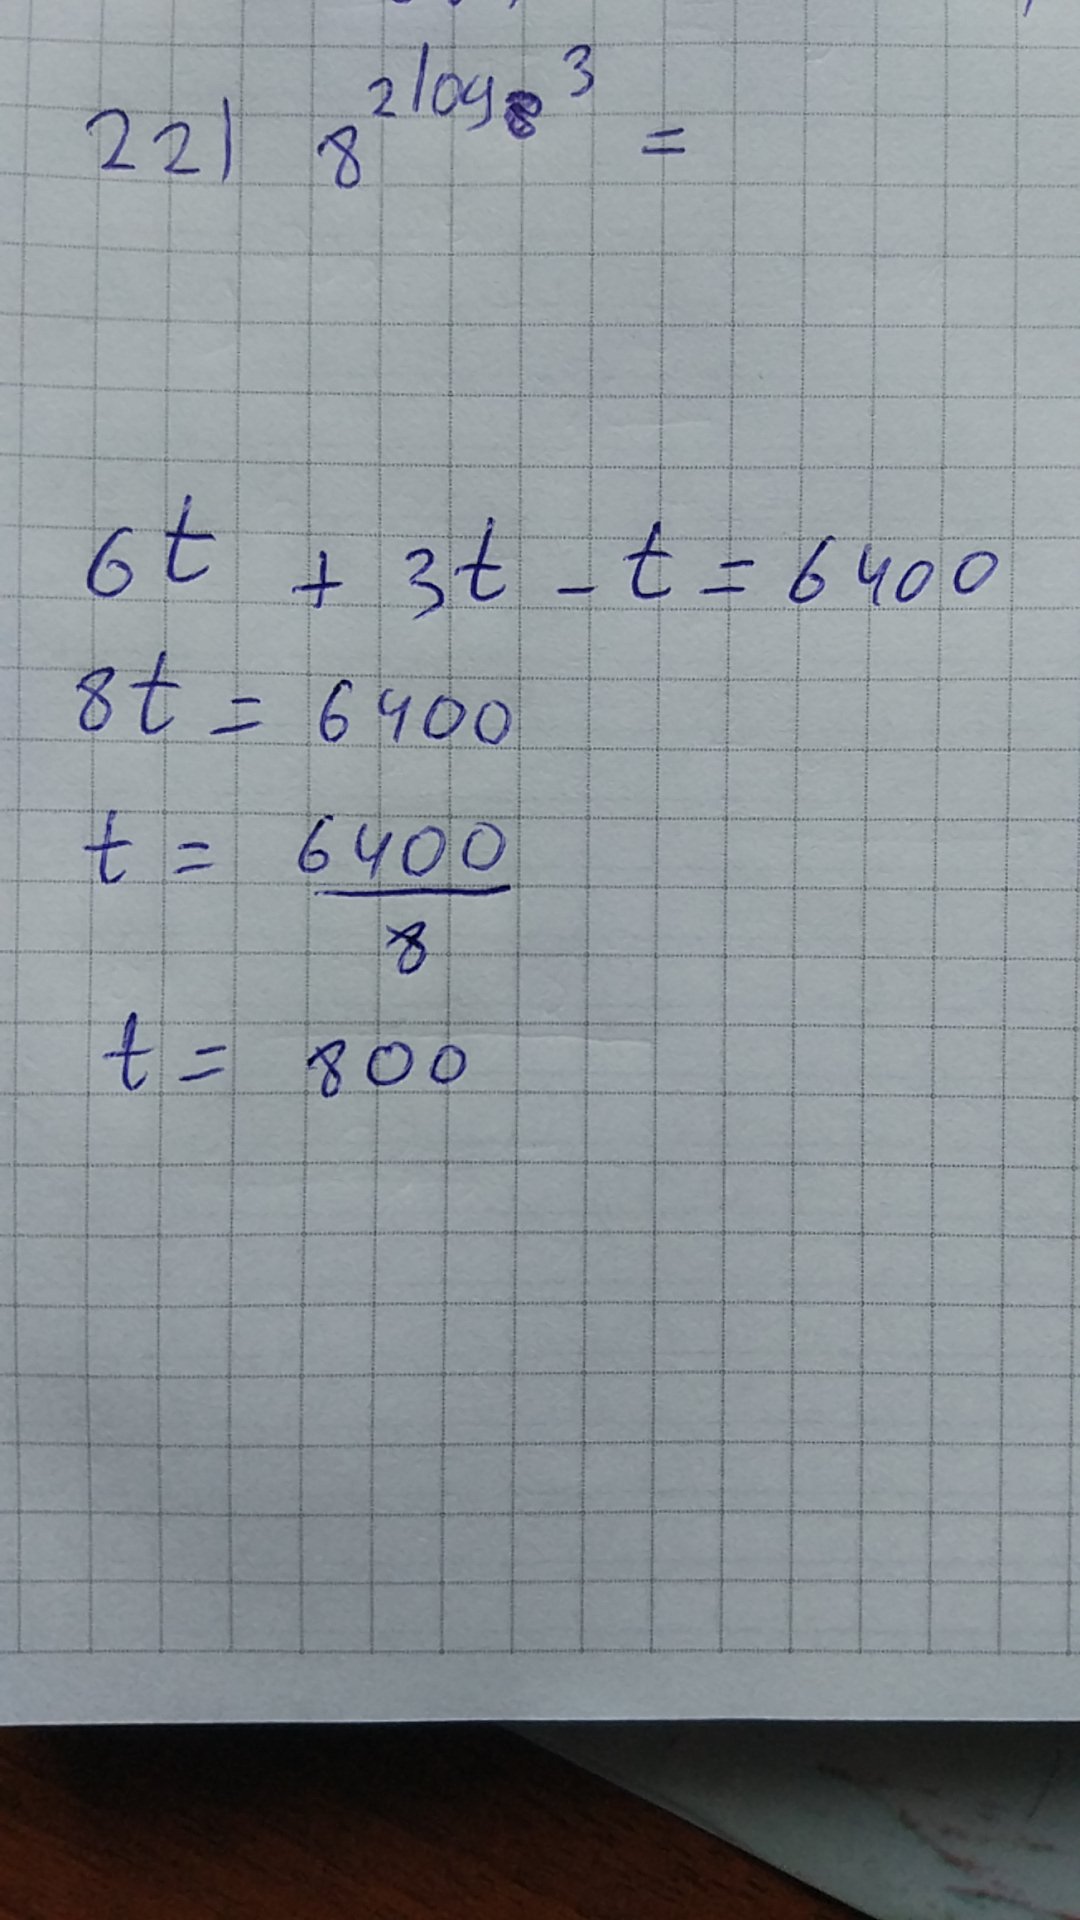 22) 8^{2 log_8 3} =
6t + 3t - t = 6400
8t = 6400
t = 6400/8
t = 800